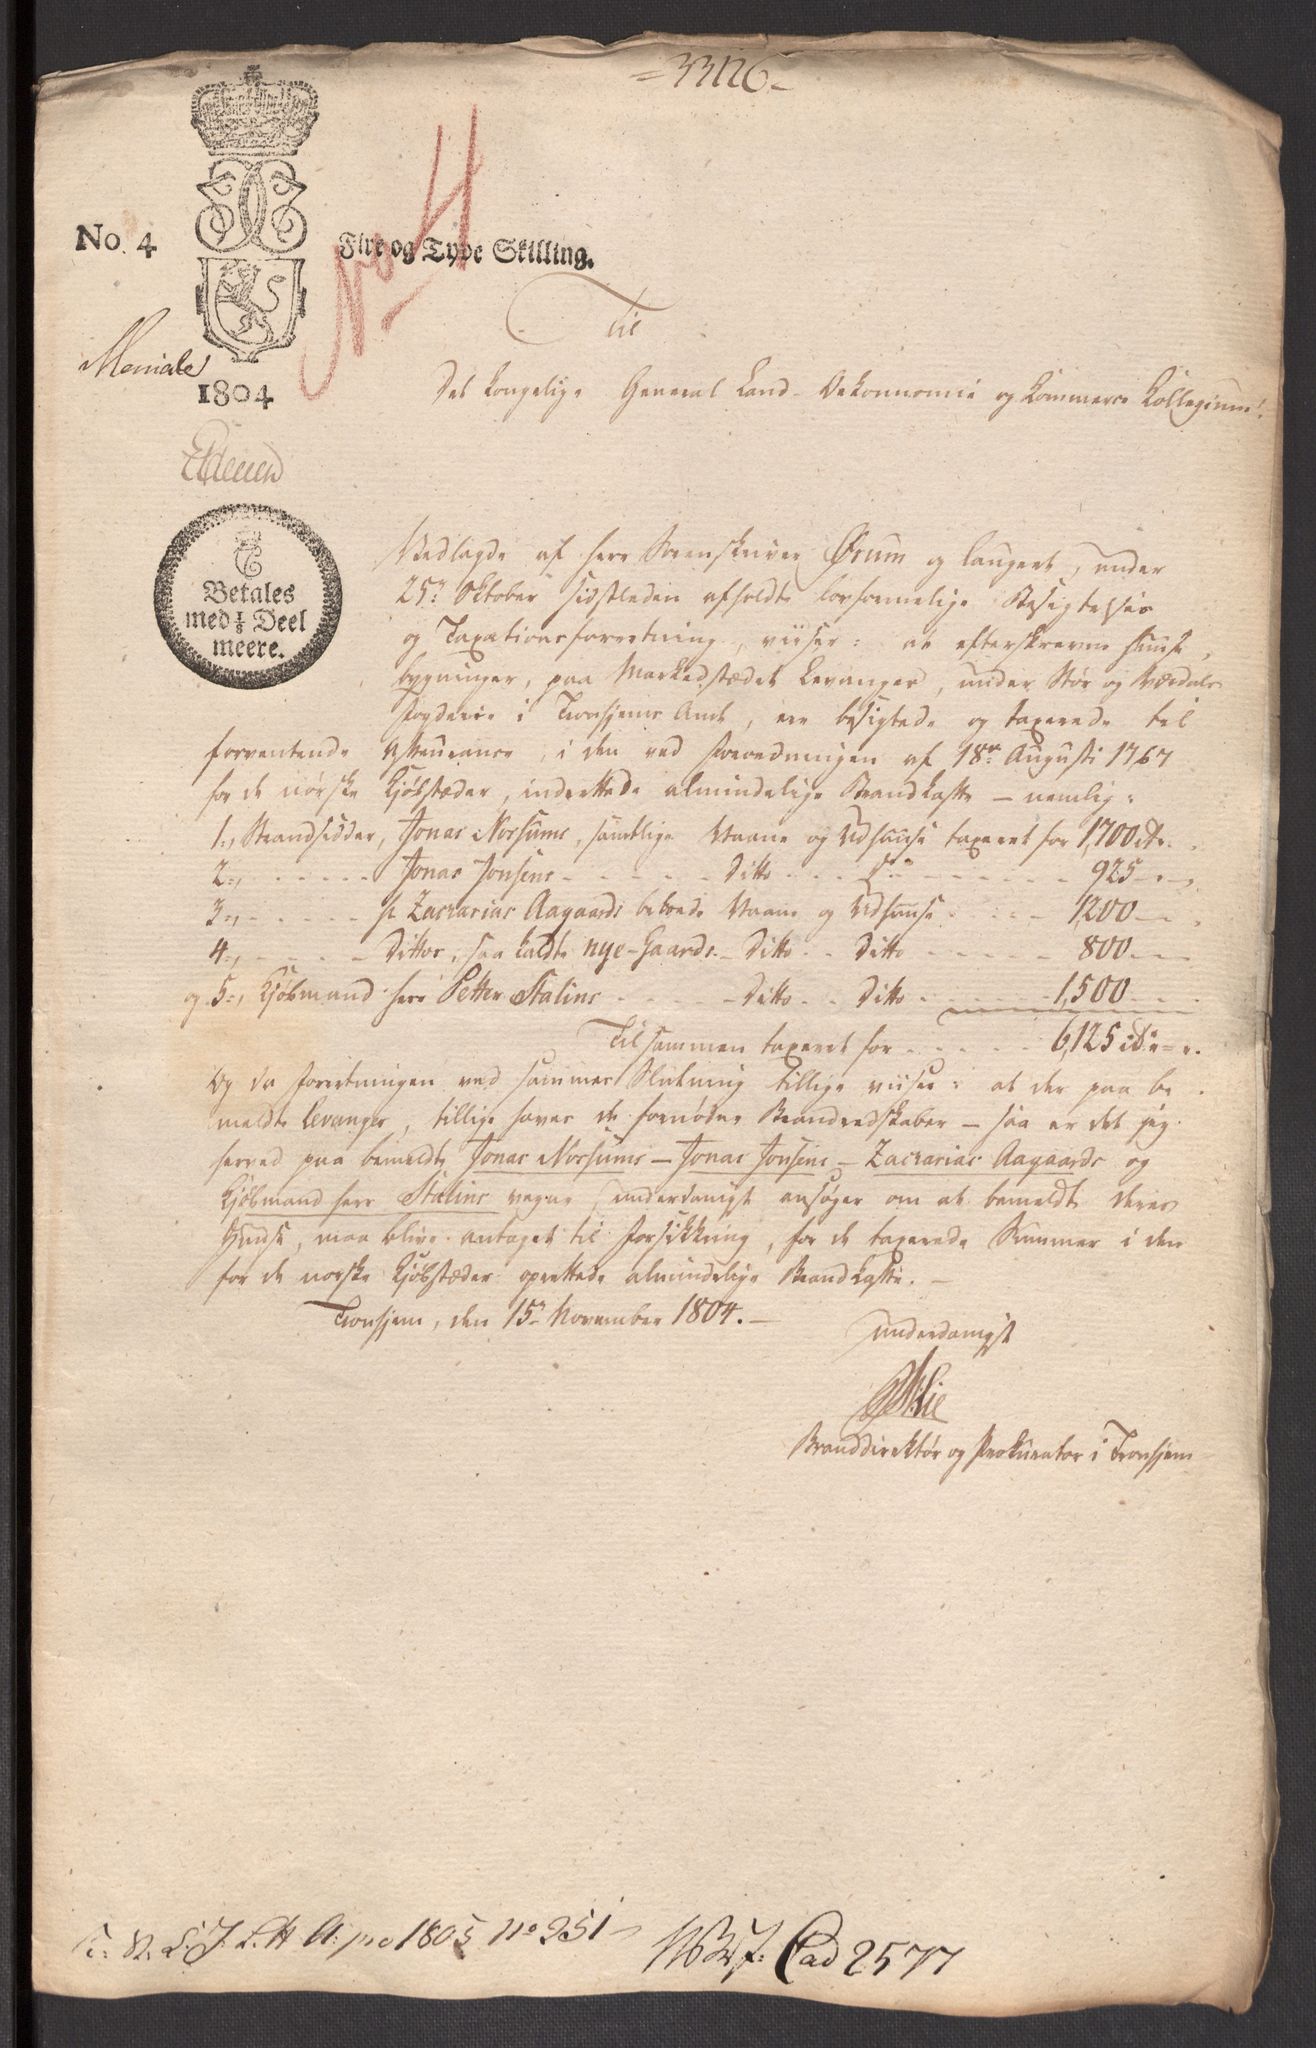 =33126=
No. 4
Fire og Tyve Skilling.
No 4
1804
Betales
med 1/8 Deel
meere.
Til
Det kongelige General Land-Oekonnomie og Kommerce Kollegium!
Vedlagde af herr Sorenskriver Ørum og Laugret, under
25de Oktober sidstleden afholdte lovformelige Besigtelses
og Taxationsforretning, viiser: at efterskrevne Huus-
bygninger, paa Markedstædet Levanger, under Stør og Værdals
Fogderie i Tronhjems Amt, ere besigtede og taxerede til
forventende Assurance, i den ved Forordningen af 18de Augusti 1767
for de nørske Kjøbstæder, indrettede almindelige Brandkasse - nemlig:
1:, Strandsidder, Jonas Norsums, samtlige Vaane og Udhuuse taxeret for 1,700 rdr.
2:, - - - - - Jonas Jonsens - - - - - Ditto - - - do - - - - - 925 - " -
3:, - - - - - hr Zacrarias Aagaards beboede Vaane og Udhuuse - - - 1200 - -
4:, - - - - - Dittos, saa kaldte nye-Gaard - Ditto - - Ditto - - - - - 800 - -
og 5:, Kjøbmand herr Petter Stalins - - - - - Ditto - - Ditto - - - - - 1,500 - -
Tilsammen taxeret for - - - - - 6,125 rdr
Og da Forretningen ved sammes Slutning tillige viiser: at der paa be-
meldte Levanger, tillige haves de fornødne Brandredskaber - saa er det jeg
herved paa bemeldte Jonas Norsums - Jonas Jonsens - Zacrarias Aagaards og
Kjøbmand herr Stalins vegne underdanigst ansøger om at bemeldte deres
Huuse, maa blive antaget til Forsikkring, for de taxerede Summer i den
for de norske Kjøbstæder oprettede almindelige Brandkasse. -
Tronhjem, den 15de November 1804. -
underdanigst
Lie
Branddirektør og Prokurator i Tronhjem
A: pro 1805 No 351
Cad 2577